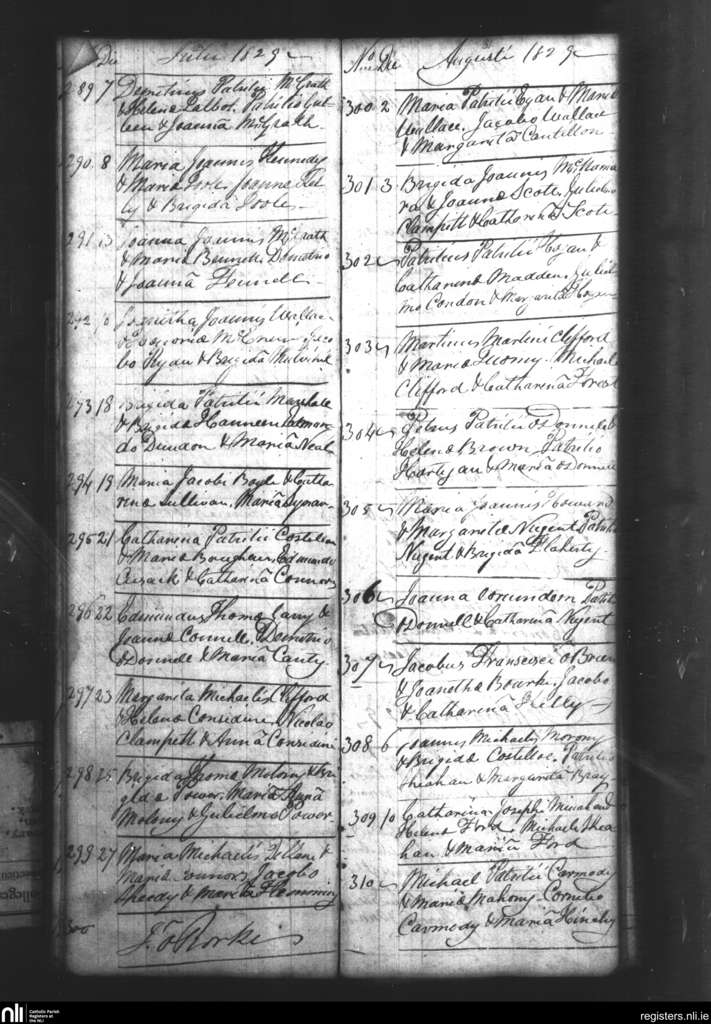 Die Julii 1829
289 7 Demetrius Patritii McGrath
& Helenæ Talbot. Patritio Cul-
leen & Joannâ McGrath.
290. 8 Maria Joannis Kennedy
& Mariæ Joanne
ly & Brigidâ
291 13 Joanna Joannis McGrath
& Mariæ Bennett. Demetrio
& Joannâ Fennell.
292 Joannis Wallace
Jaco
bo Ryan & Brigidâ
293 18 Brigida Patritii Marshall
& Brigidæ
do Dundon & Mariâ Neal
294 19 Maria Jacobi Boyle & Catha
rinæ Sullivan. Mariâ
295 21 Catharina Patritii Costelloe
& Mariæ Edmundo
Cusack & Catharinâ Connors
296 22 Edmundus Thomæ Carry &
Joannæ Connell. Demetrio
O'Donnell & Mariâ Canty.
297 23 Margarita Michaelis Clifford
& Helenæ Considine. Nicolao
Clampett & Annâ Considine
298 25 Brigida Thomæ Molony & Bri
gidæ Power. Mariâ Annâ
Molony & Gulielmo Power.
299 27 Maria Michaelis &
Mariæ Connors Jacobo
Sheedy & Mariâ Flemming
300
J. O'Rorke
No. Die Augusti 1829
300 2 Maria Patritii Egan & Mariæ
Wallace. Jacobo Wallace
& Margaritâ Cantillon
301 3 Brigida Joannis McNama
ra & Joannæ Scott. Gulielmo
Clampett & Catharinâ Scott.
302 Patritius Patritii Hogan &
Catharinæ Madden. Guliel
mo Condon & Margaritâ Hogan
303 Martinus Martini Clifford
& Mariæ Twomy. Michaele
Clifford & Catharinâ Forest
304 Petrus Patritii O'Donnell &
Helenæ Brown. Patritio
Hartyan & Mariâ O'Donnell
305 Maria Joannis Howard
& Margaritæ Nugent. Patritio
Nugent & Brigidâ Flaherty.
306 Joanna Patrit
O'Donnell & Catharinâ Nugent
307 Jacobus Francisci O'Brien
& Joannæ Bourke. Jacobo
& Catharina Kelly
308 6 Joannis Michaelis Morony
& Brigidæ Costelloe. Patritio
Sheahan & Margaritâ Bray
309 10 Catharina Josephi
Helenæ Ford. Michaele Shea
han & Mariâ Ford
310 Michael Patritii Carmody
& Mariæ Mahony. Cornelio
Carmody & Mariâ Hinchy
NLI
Catholic Parish
Registers at
the NLI
registers.nli.ie